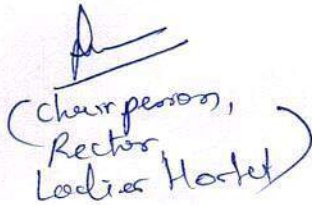 (Chairperson,
Rector,
Ladies Hostel)